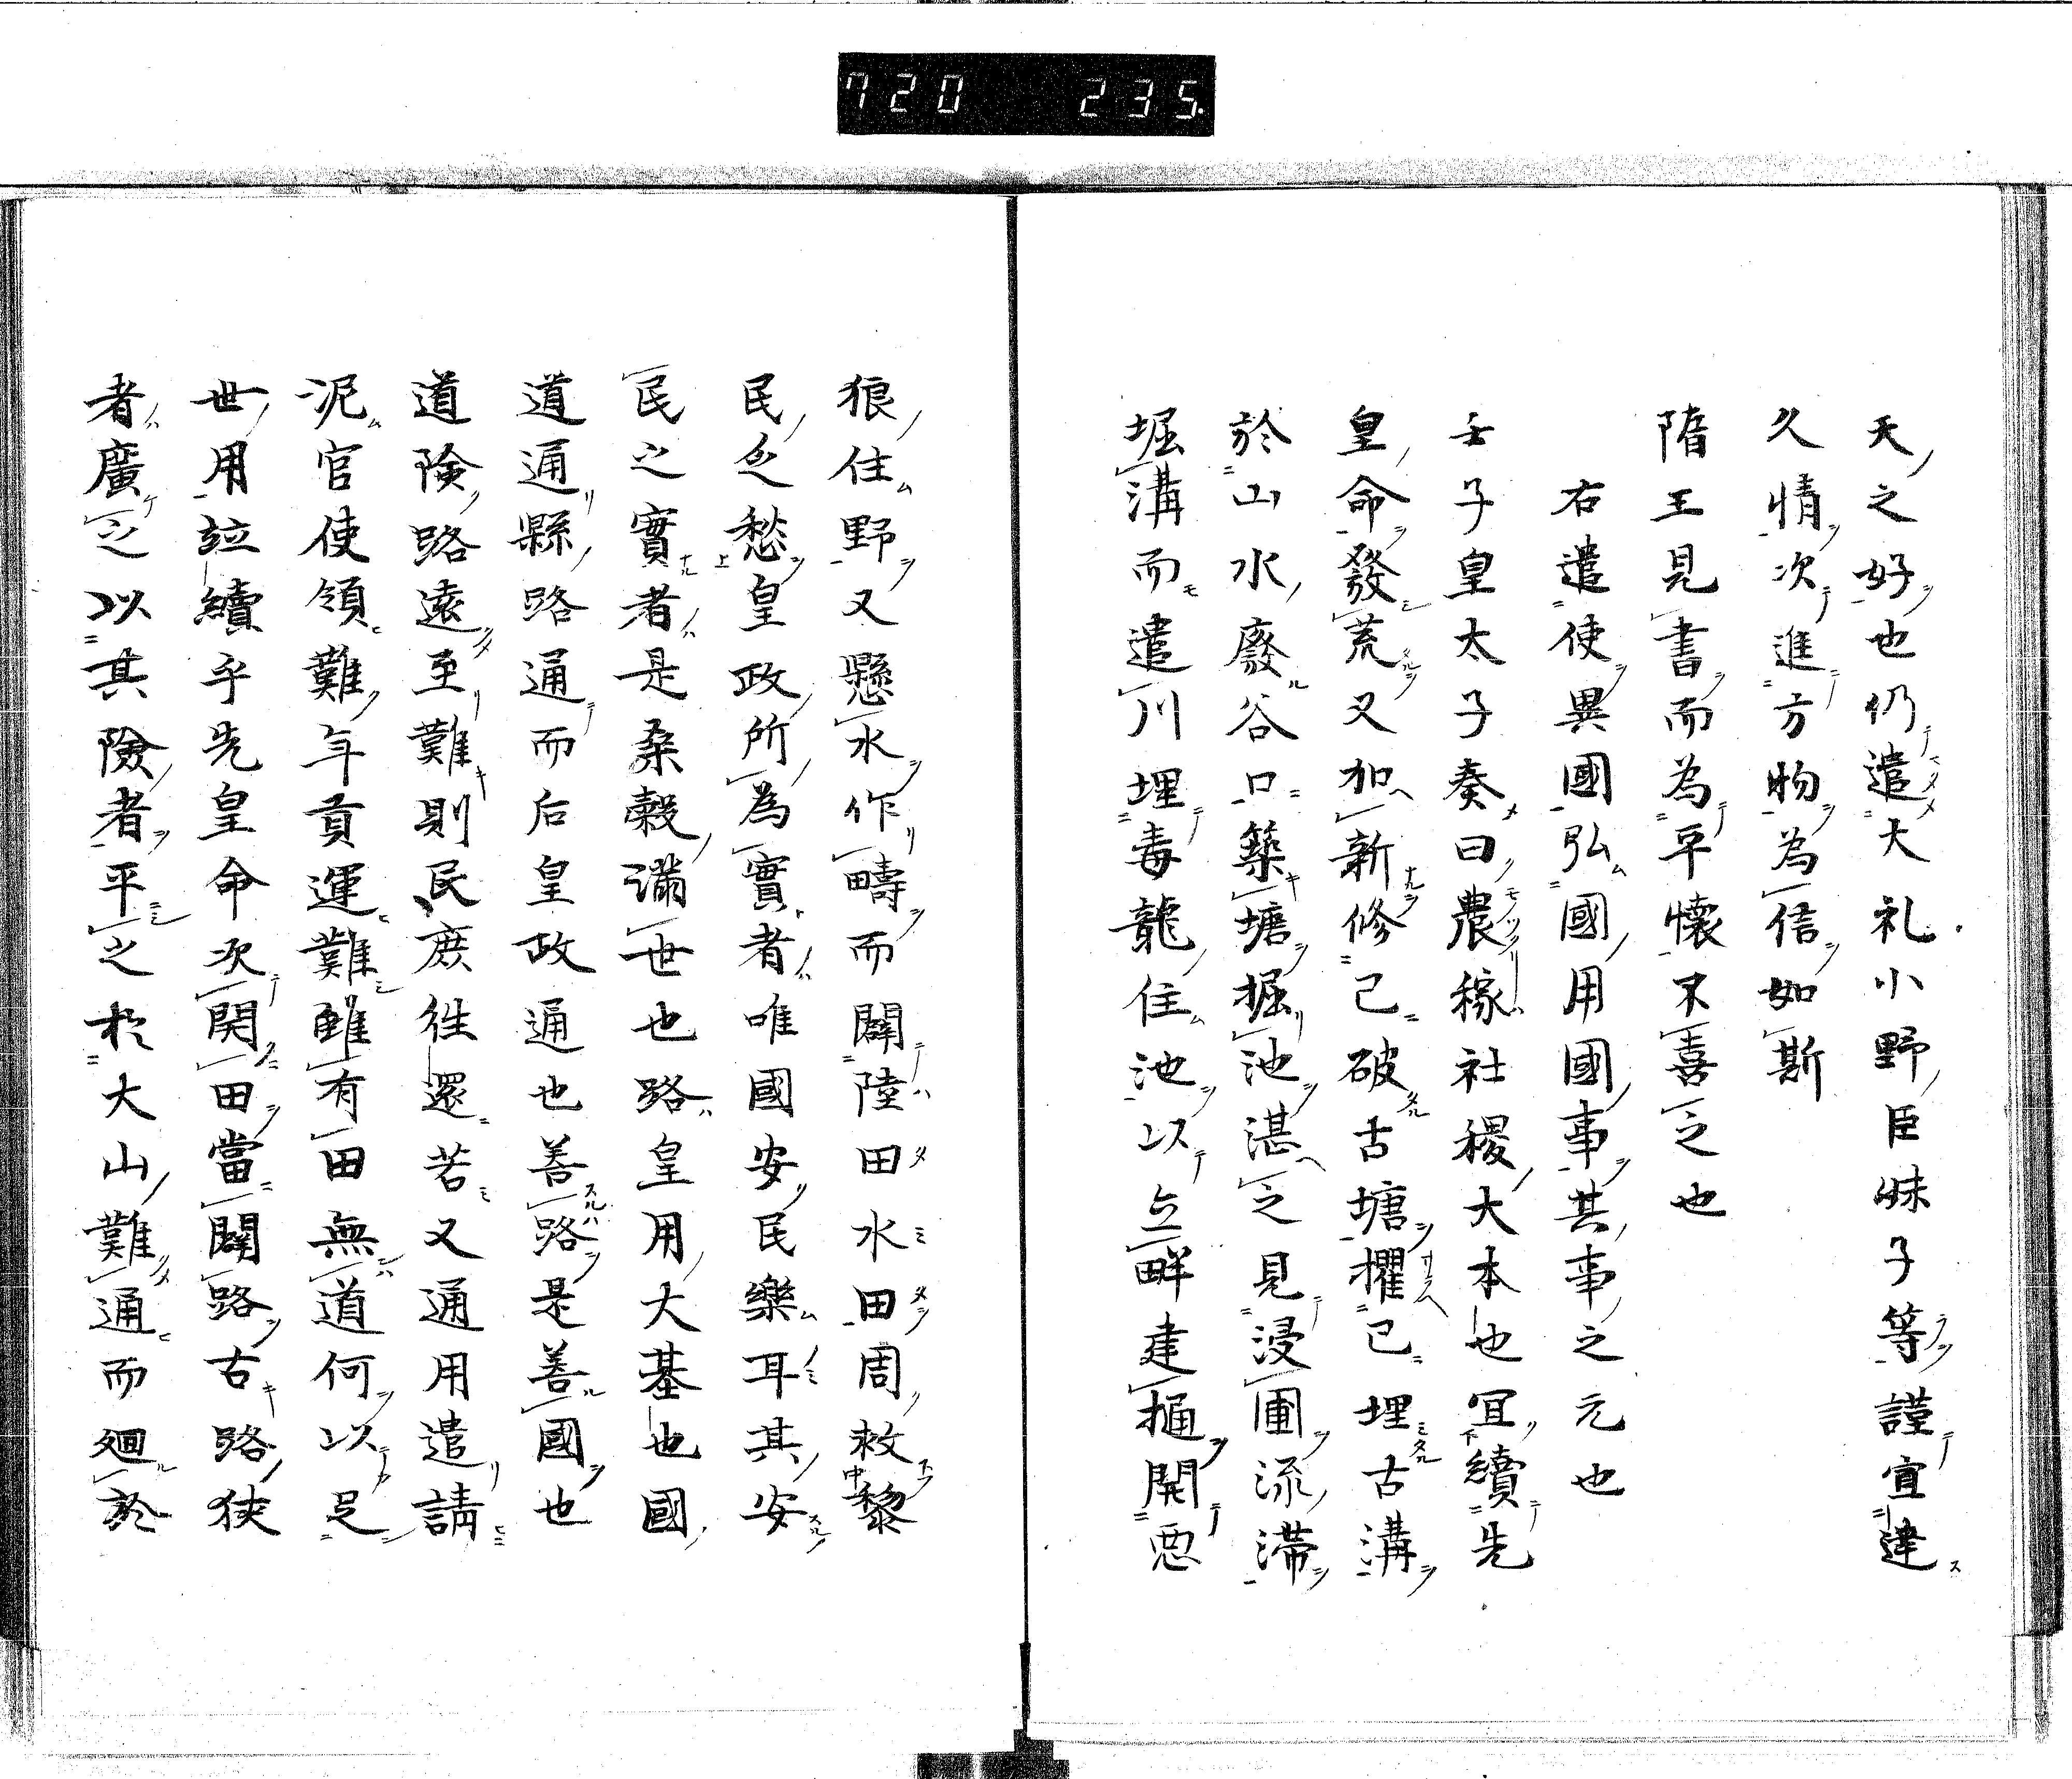 720 235
天之好也仍遣大礼小野臣妹子等謹宣建
久情次進方物為信如斯
隋王見書而為平懷不喜之也
右遣使異國弘國用國事其事之元也
壬子皇太子奏曰農稼社稷大本也宜續先
皇命發荒又加新修己破古塘擢已埋古溝
於山水廢谷口築塘掘池湛之見浸圃流滞
堀溝而遣川埋毒龍住池以立畔建樋開惡
狼住野又懸水作疇而闢陸田水田周救黎
民之愁皇政所為實者唯國安民樂耳其安
民之實者是桑穀滿世也路皇用大基也國
道通縣路通而后皇政通也善路是善國也
道険路遠至難則民庶往還若又通用遣請
泥官使領難年貢運難雖有田無道何以足
世用竝續乎先皇命次開田當闢路古路狹
者廣之以其險者平之於大山難通而廻於